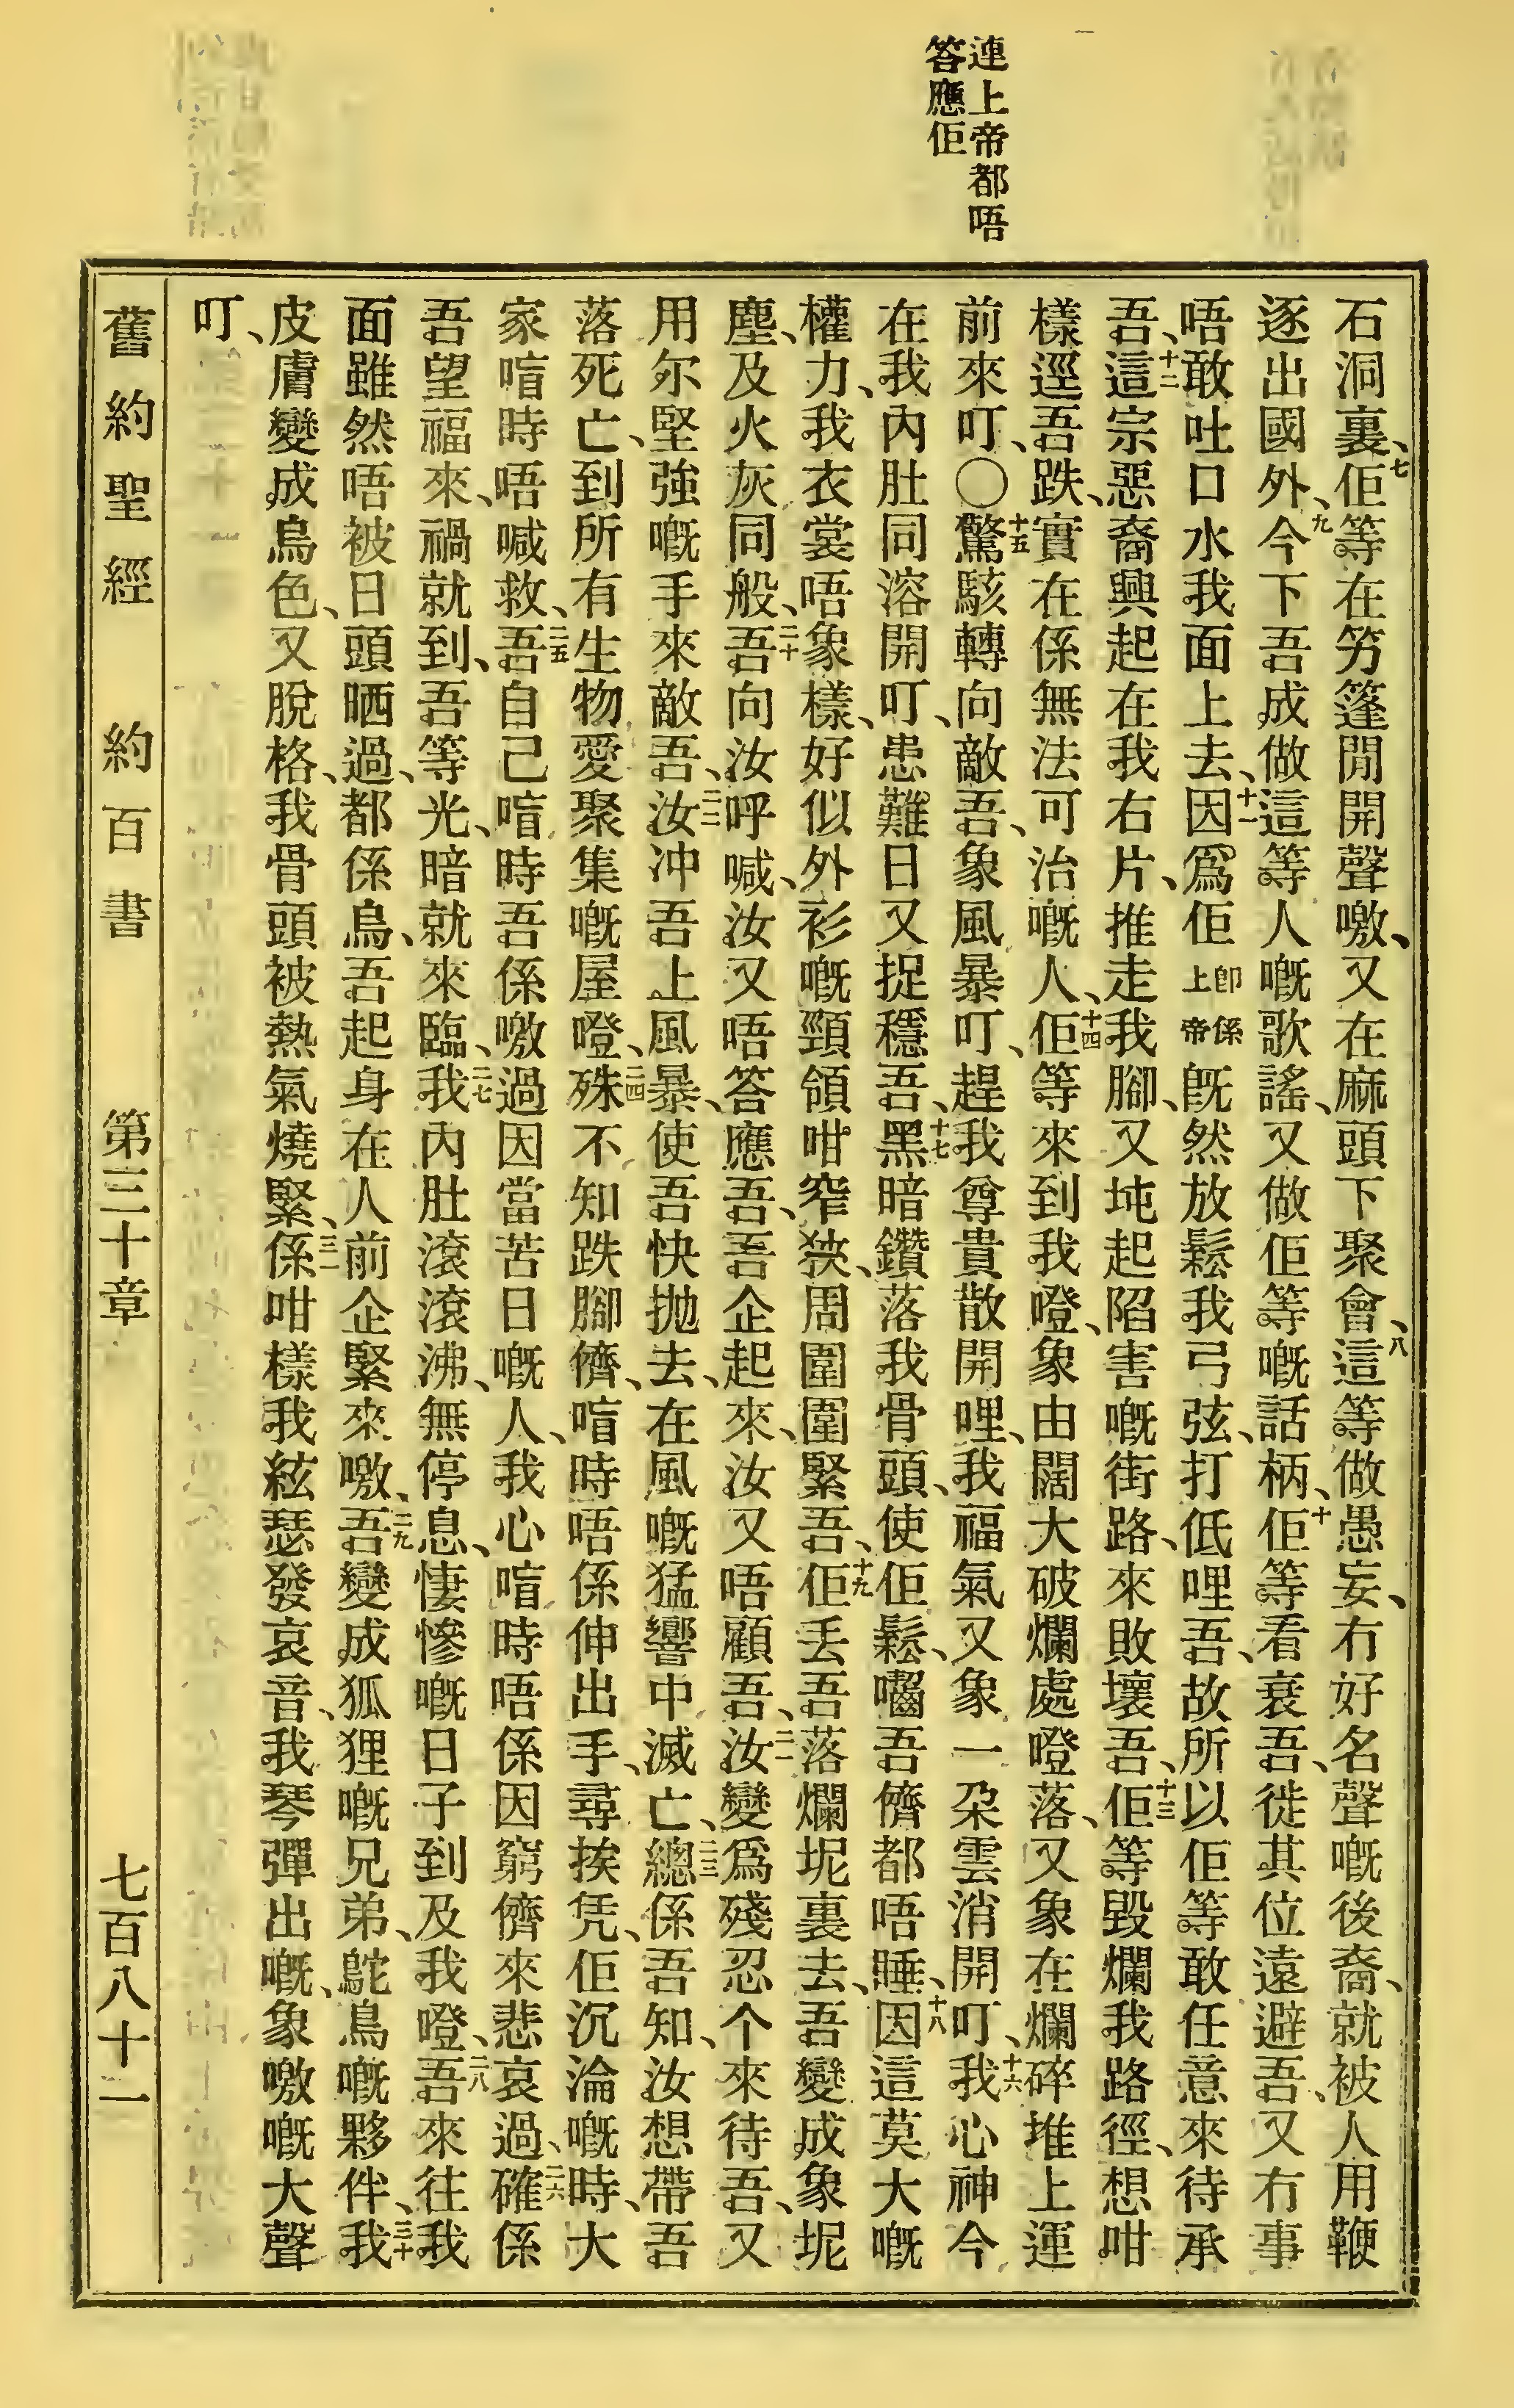 連上帝都唔
答應佢
石洞裏、七佢等在竻篷閒開聲噭、又在麻頭下聚會、八這等做愚妄、冇好名聲嘅後裔、就被人用鞭
逐出國外、九今下吾成做這等人嘅歌謠、又做佢等嘅話柄、十佢等看衰吾、徙其位遠避吾、又冇事
唔敢吐口水我面上去、十一因爲佢卽係上帝旣然放鬆我弓弦、打低哩吾、故所以佢等敢任意來待承
吾、十二這宗惡裔興起在我右片、推走我腳、又坉起陷害嘅街路、來敗壞吾、十三佢等毀爛我路徑、想咁
樣逕吾跌、實在係無法可治嘅人、十四佢等來到我嶝、象由闊大破爛處嶝落、又象在爛碎堆上運
前來叮、〇十五驚駭轉向敵吾、象風暴叮、趕我尊貴散開哩、我福氣又象一朶雲消開叮、十六我心神今
在我內肚同溶開叮、患難日又捉穩吾、十七黑暗鑽落我骨頭、使佢鬆、囓吾儕都唔睡、十八因這莫大嘅
權力、我衣裳唔象樣、好似外衫嘅頸領咁窄狹、周圍圍緊吾、十九佢丢吾落爛坭裏去、吾變成象坭
塵、及火灰同般、二十吾向汝呼喊、汝又唔答應吾、吾企起來、汝又唔顧吾、二一汝變爲殘忍个來待吾、又
用尔堅強嘅手來敵吾、二二汝冲吾上風暴、使吾快抛去、在風嘅猛響中滅亡、二三總係吾知、汝想帶吾
落死亡、到所有生物愛聚集嘅屋嶝、二四殊不知跌腳儕、喑時唔係伸出手、尋挨凭、佢沉淪嘅時、大
家喑時唔喊救、二五吾自己喑時吾係噭過因當苦日嘅人、我心喑時唔係因窮儕來悲哀過、二六確係
吾望福來、禍就到、吾等光、暗就來臨、二七我內肚滾滾沸、無停息、悽慘嘅日子到及我嶝、二八吾來往我
面雖然唔被日頭晒過、都係烏、吾起身在人前企緊來噭、二九吾變成狐狸嘅兄弟、鴕鳥嘅夥伴、三十我
皮膚變成烏色、又脫格、我骨頭被熱氣燒緊、三一係咁樣我絃瑟發哀音、我琴彈出嘅、象噭嘅大聲
叮、
舊約聖經　約百書　第三十章　七百八十一